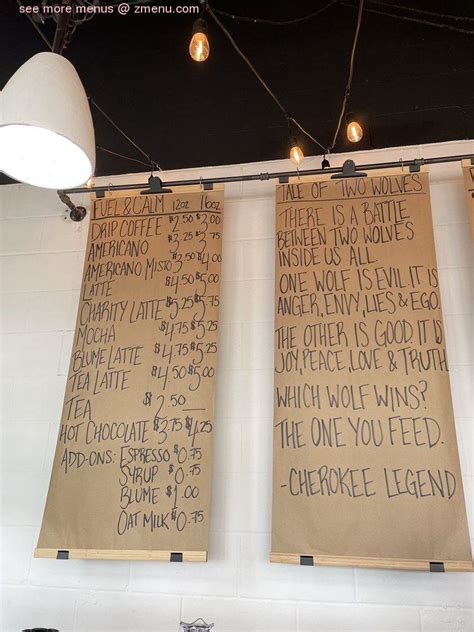 see more menus @ zmenu.com
FUEL & CALM 12oz 16oz
DRIP COFFEE $2.50 $3.00
AMERICANO $3.25 $3.75
AMERICANO MISTO $3.50 $4.00
LATTE $4.50 $5.00
CHARITY LATTE $5.25 $5.75
MOCHA $4.75 $5.25
BLUME LATTE $4.75 $5.25
TEA LATTE $4.50 $5.00
TEA $2.50 —
HOT CHOCOLATE $3.75 $4.25
ADD-ONS: ESPRESSO $0.75
SYRUP $0.75
BLUME $1.00
OAT MILK $0.75
TALE OF TWO WOLVES
THERE IS A BATTLE
BETWEEN TWO WOLVES
INSIDE US ALL.
ONE WOLF IS EVIL. IT IS
ANGER, ENVY, LIES & EGO.
THE OTHER IS GOOD. IT IS
JOY, PEACE, LOVE & TRUTH.
WHICH WOLF WINS?
THE ONE YOU FEED.
-CHEROKEE LEGEND